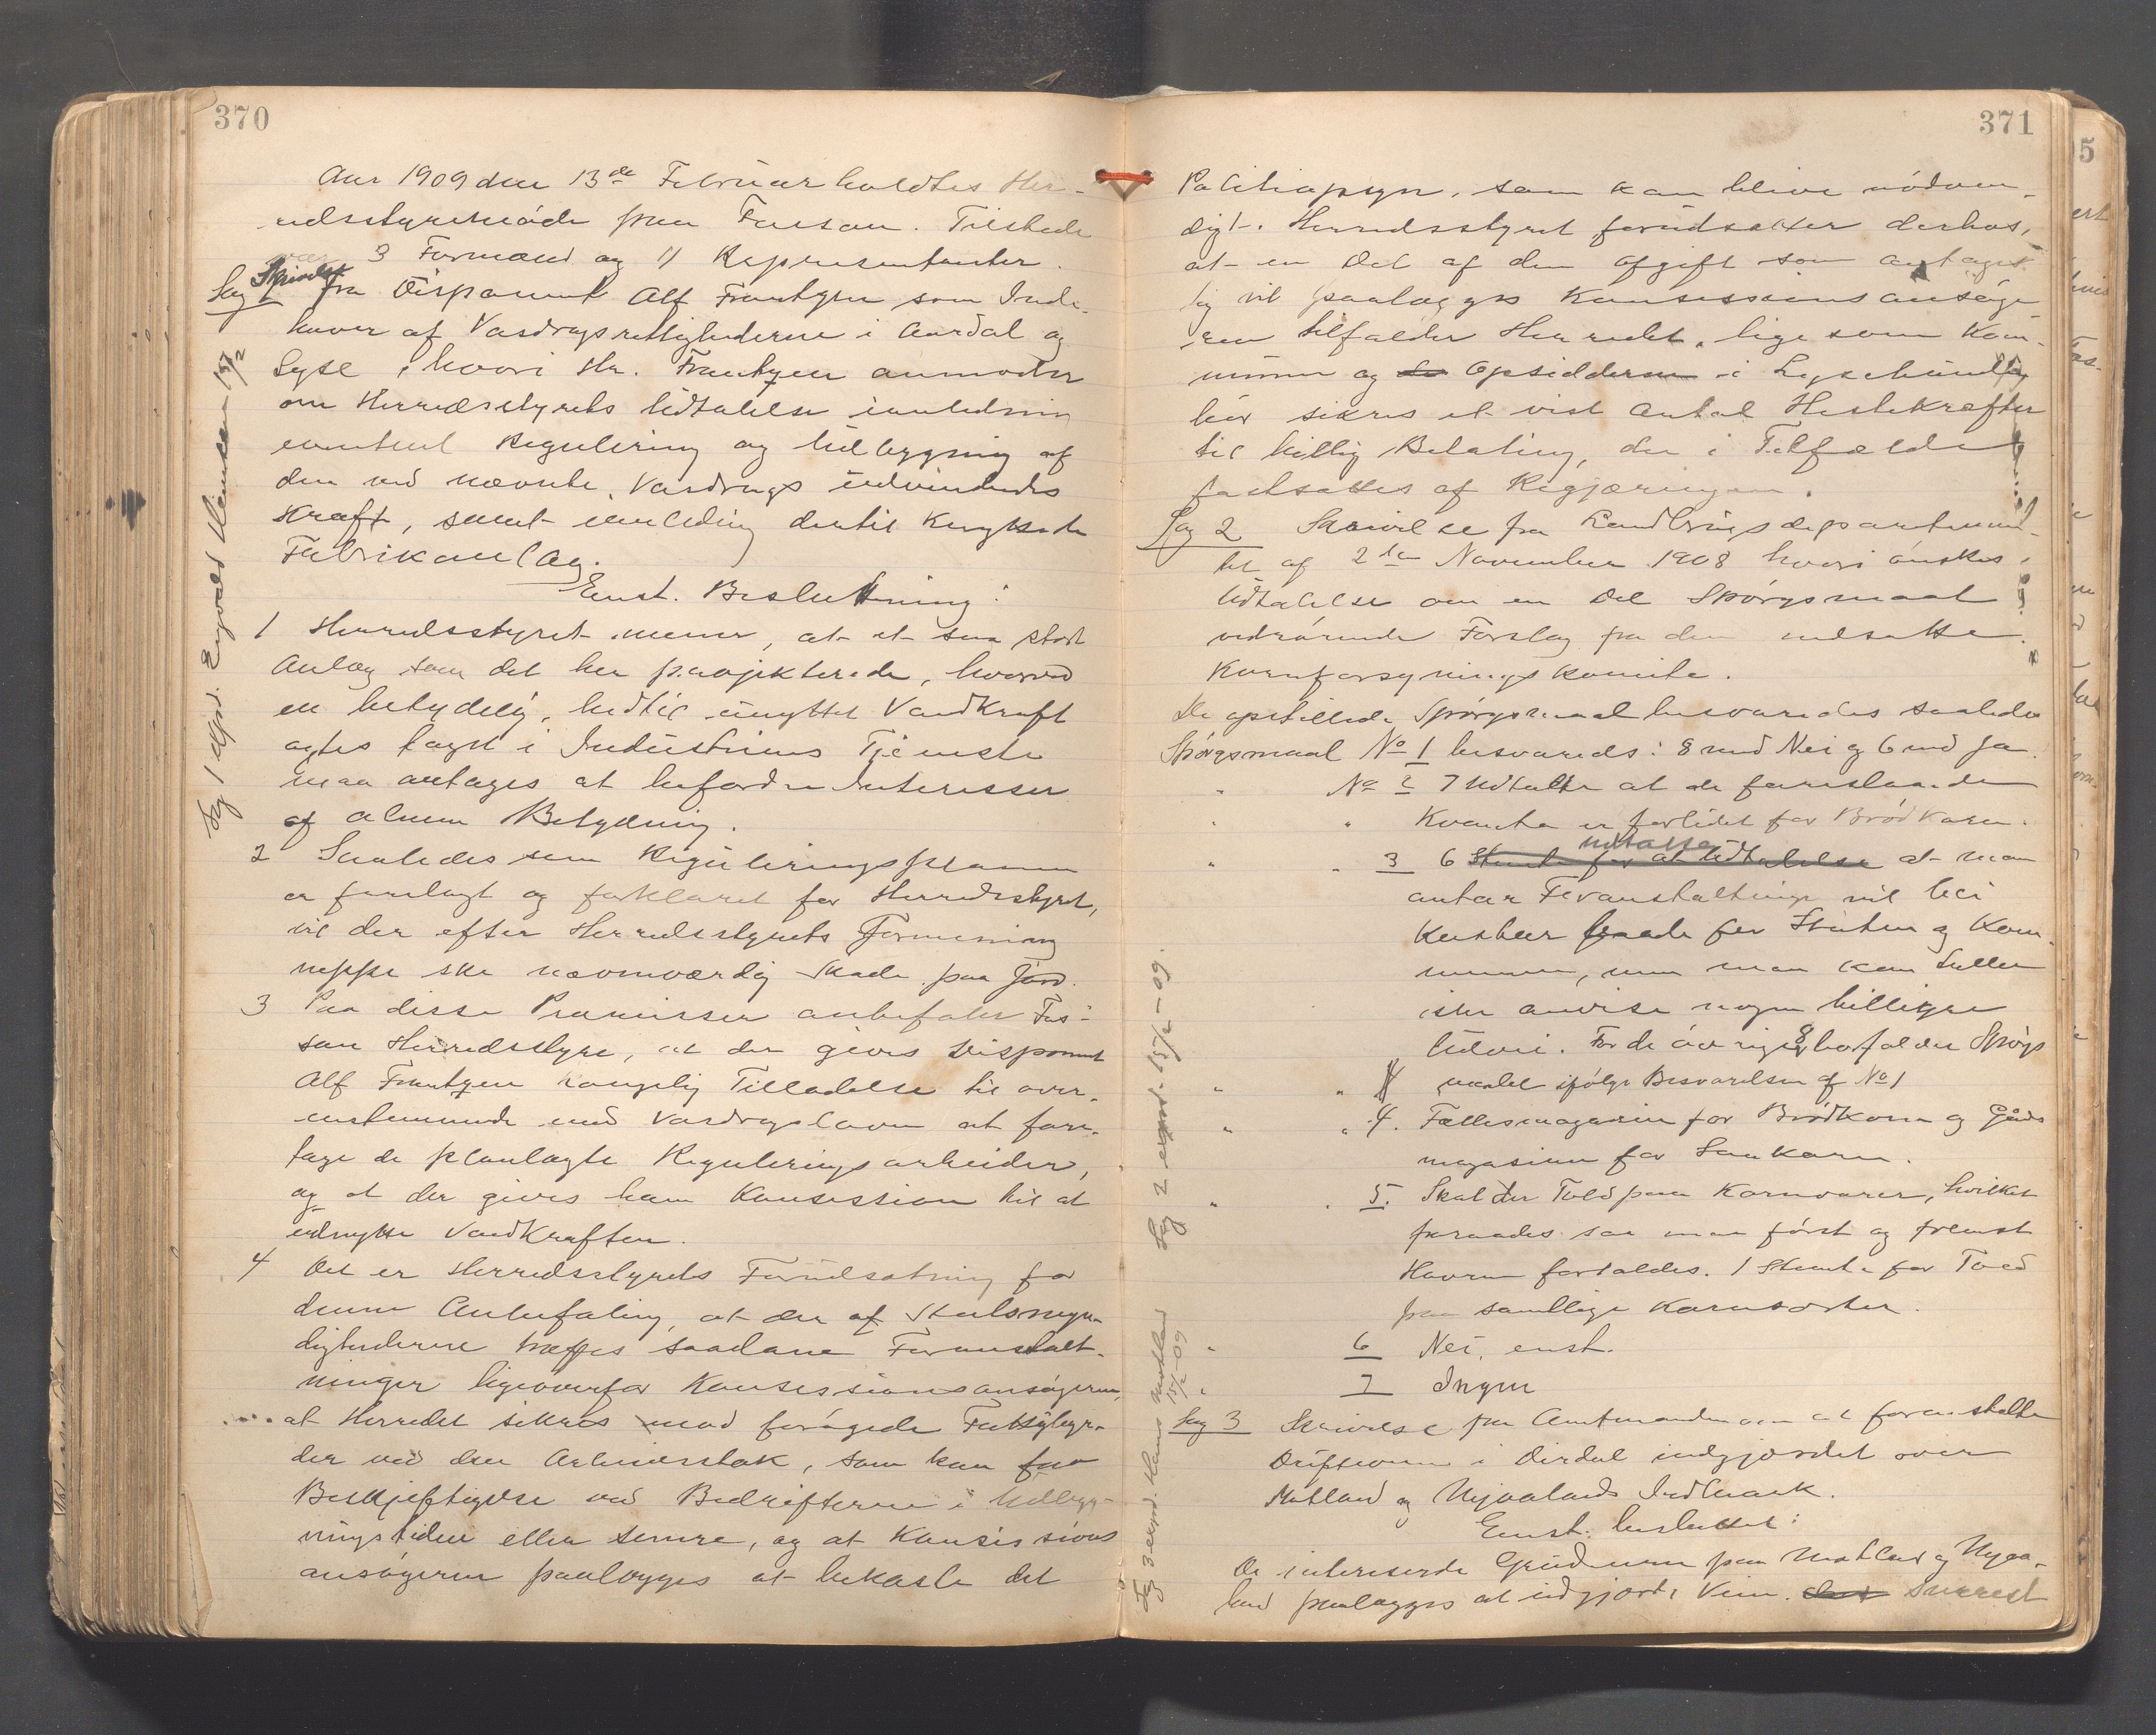 370
Aar 1909 den 13de Februar holdtes Her-
redsstyremøde paa Fossan. Tilstede
var 3 Formænd og 11 Repræsentanter.
Sag 1 Skrivelse fra Disponent Alf Frantzen som Inde-
haver af Vasdragsrettighederne i Aardal og
Lyse, hvori Hr. Frantzen anmoder
om Herredsstyrets Udtalelse i anledning
eventuel Regulering og udbygning af
den ved nævnte Vasdrags indvindende
Kraft, samt i anledning dertil knyttede
Fabrikanlæg.
Enst. Beslutning:
1 Herredsstyret mener, at et saa stort
Anlæg som det her projekterede, hvorved
en betydelig, hidtil unyttet Vandkraft
agtes taget i Industriens Tjeneste
maa antages at befordre Interesser
af almen Betydning.
2 Saaledes som Reguleringsplanen
er forelagt og forklaret for Herredsstyret,
vil der efter Herredsstyrets Formening
neppe ske nævneværdig Skade paa Jord.
3 Paa disse Præmisser anbefaler Fos-
san Herredsstyre, at der gives Disponent
Alf Frantzen kongelig Tilladelse til over-
ensstemmende med Vasdragsloven at fore-
tage de planlagte Reguleringsarbeider,
og at der gives ham Konsession til at
udnytte Vandkraften.
4 Det er Herredsstyrets Forudsætning for
denne Anbefaling, at der af Statsmyn-
dighederne træffes saadane Foranstalt-
ninger ligeoverfor Konsessionsansøgeren,
at Herredet sikres mod forøgede Fattigbyr-
der ved den Arbeiderstok, som kan faa
Beskjeftigelse ved Bedrifterne i Udbyg-
ningstiden eller senere, og at Konsessions
ansøgeren paalægges at bekoste det
Sag 1 expd. Eyvald Hansen 15/2
371
Politiopsyn, som kan blive nødven-
digt. Herredsstyret forudsætter derhos,
at en Del af den afgift som antagelig
vil paalægges Konsessionsansøge-
ren tilfalder Herredet, lige som Kom-
munen og Opsidderne i Lysebunden
bør sikres et vist Antal Hestekræfter
til billig Betaling, der i Tilfælde
fastsættes af Regjæringen.
Sag 2 Skrivelse fra Landbrugsdepartemen-
tet af 2den November 1908 hvori ønskes
Udtalelse om en Del Spørgsmaal
vedrørende Forslag fra den nedsatte
Kornforsyningskomite.
De opstillede Spørgsmaal besvaredes saaledes
Spørgsmaal No 1 besvareds: 8 med Nei og 6 med Ja
" No 2 7 Udtalte at de foreslaaede
" " Kvanta er forlidet for Brødkorn.
" " 3 6 udtalte Stemte for at Udtalelse at man
antar Foranstaltninge vil bli
kostbar baade for Staten og Kom-
munen, men man kan heller
ikke anvise nogen billigere
Udvei. For de øvrige 8 bortfalder Spørgs
" " maalet ifølge Besvarelsen af No 1
" " 4. Fællesmagasin for Brødkorn og Gaards
magasiner for Saakorn.
" " 5. Skal der Told paa Kornvarer, hvilket
fraraades saa maa først og fremst
Havren fortoldes. 1 Stemte for Told
paa samtlige Kornsorter.
" 6 Nei, enst.
" 7 Ingen
Sag 3 Skrivelse fra Amtmanden om at foranstalte
Driftevein i Dirdal indgjærdet over
Motland og Nyaalands Indmark.
Enst. besluttet:
De interesserede Grundeiere paa Motland og Nyaa-
land paalægges at indgjærde Vein. snarest
Sag 2 expd. 15/2-09.
Sag 3 expd. Hans Motland 15/2-09